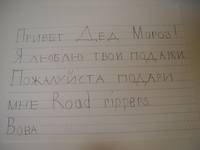 Привет Дед Мороз!
Я люблю твои подаки
Пожалуйста подари
мне Road rippers
Вова